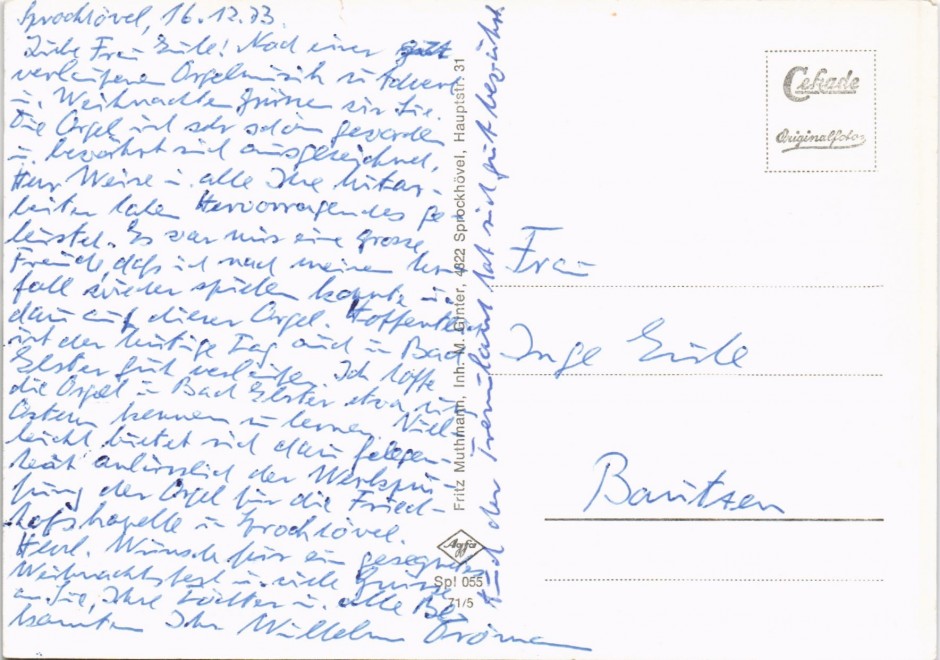 Sprockhövel, 16.12.73.
Liebe Frau Eule! Nach einer gut
verlaufenen Orgelmusik zu Advent
u. Weihnachten grüssen wir Sie.
Die Orgel ist sehr schön geworden
u. bewährt sich ausgezeichnet,
Herr Weise u. alle Ihre Mitar-
beiter haben Hervorragendes ge-
leistet. Es war mir eine grosse
Freude, daß ich nach meinem Un-
fall wieder spielen konnte u.
dann auf dieser Orgel. Hoffentlich
ist der heutige Tag auch in Bad
Elster gut verlaufen. Ich hoffe
die Orgel in Bad Elster etwa um
Ostern kennen zu lernen. Viel-
leicht bietet sich dann Gelegen-
heit anlässlich der Werkprü-
fung der Orgel für die Fried-
hofskapelle in Sprockhövel.
Herzl. Wünsche für ein gesegnetes
Weihnachtsfest u. viele Grüsse
an Sie, Ihre Töchter u. alle Be-
kannten Ihr Wilhelm
Auch der Tremulant hat sich gut bewährt.
Fritz Muthmann, Inh. M. Ginter, 4322 Sprockhövel, Hauptstr. 31
Agfa
Spl 055
71/5
Cekade
Originalfoto
Frau
Inge Eule
Bautzen